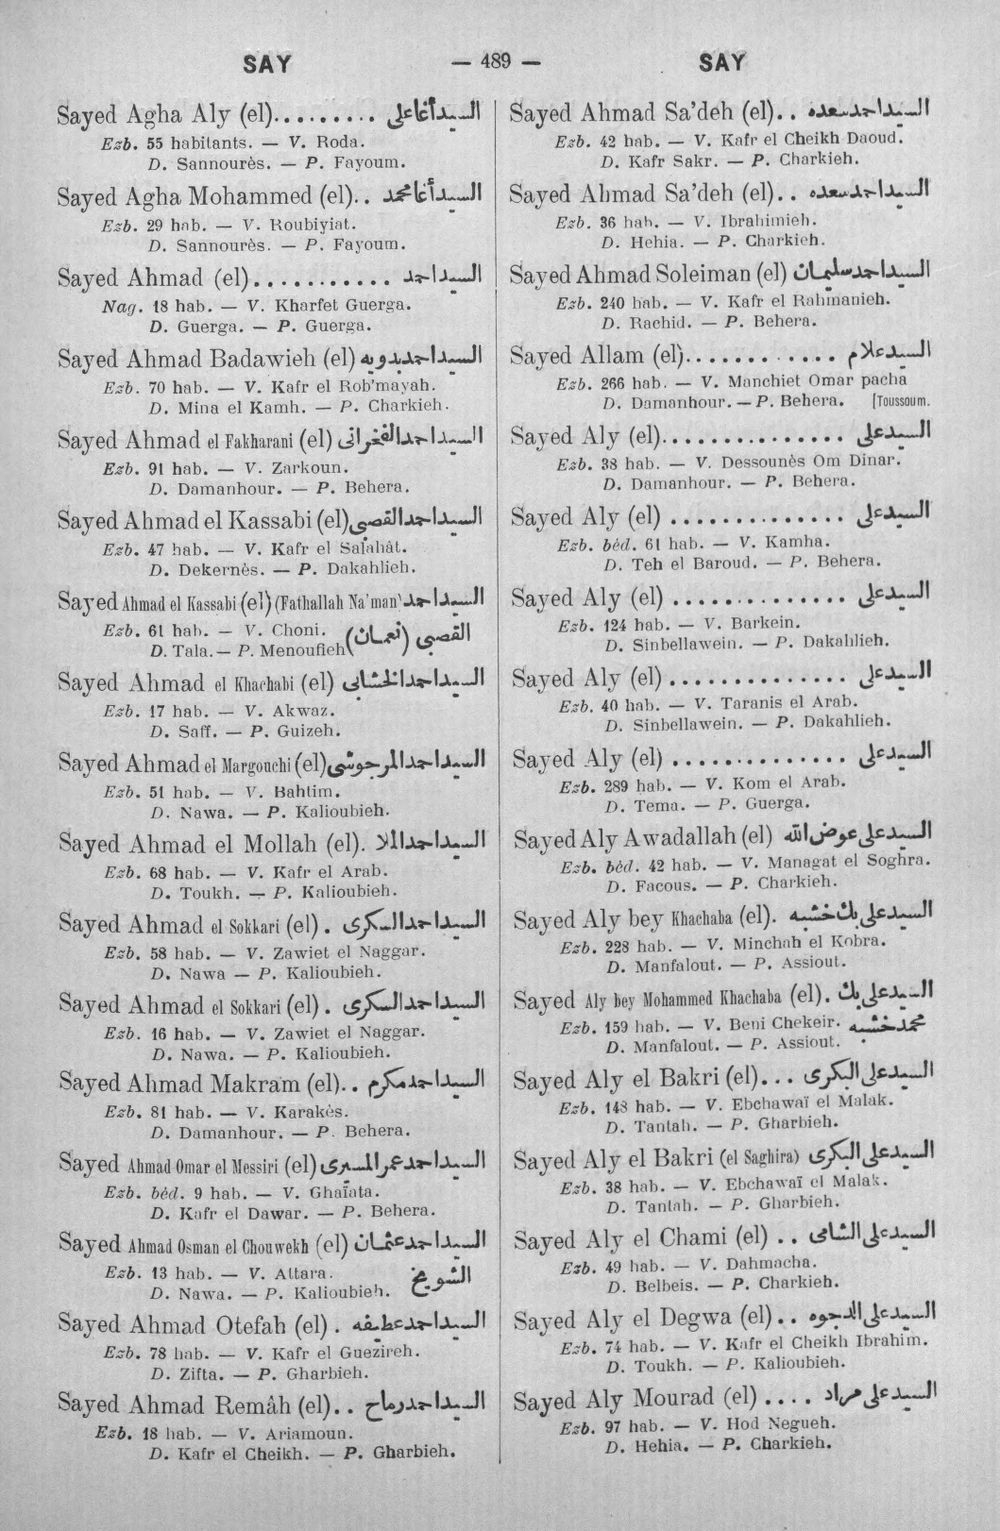 SAY — 489 — SAY
Sayed Agha Aly (el).......... السيد أغا على
Ezb. 55 habitants. — V. Roda.
D. Sannourès. — P. Fayoum.
Sayed Agha Mohammed (el).. السيد أغا محمد
Ezb. 29 hab. — V. Roubiyiat.
D. Sannourès. — P. Fayoum.
Sayed Ahmad (el)........... السيد احمد
Nag. 18 hab. — V. Kharfet Guerga.
D. Guerga. — P. Guerga.
Sayed Ahmad Badawieh (el) السيد احمد بدويه
Ezb. 70 hab. — V. Kafr el Rob'mayah.
D. Mina el Kamh. — P. Charkieh.
Sayed Ahmad el Fakharani (el) السيد احمد الفخرانى
Ezb. 91 hab. — V. Zarkoun.
D. Damanhour. — P. Behera.
Sayed Ahmad el Kassabi (el) السيد احمد القصبى
Ezb. 47 hab. — V. Kafr el Salahât.
D. Dekernès. — P. Dakahlieh.
Sayed Ahmad el Kassabi (el) (Fathallah Na'man) السيد احمد
Ezb. 61 hab. — V. Choni. القصبى (نعمان)
D. Tala. — P. Menoufieh
Sayed Ahmad el Khachabi (el) السيد احمد الخشابى
Ezb. 17 hab. — V. Akwaz.
D. Saff. — P. Guizeh.
Sayed Ahmad el Margouchi (el) السيد احمد المرجوشى
Ezb. 51 hab. — V. Bahtim.
D. Nawa. — P. Kalioubieh.
Sayed Ahmad el Mollah (el). السيد احمد الملا
Ezb. 68 hab. — V. Kafr el Arab.
D. Toukh. — P. Kalioubieh.
Sayed Ahmad el Sokkari (el). السيد احمد السكرى
Ezb. 58 hab. — V. Zawiet el Naggar.
D. Nawa — P. Kalioubieh.
Sayed Ahmad el Sokkari (el). السيد احمد السكرى
Ezb. 16 hab. — V. Zawiet el Naggar.
D. Nawa. — P. Kalioubieh.
Sayed Ahmad Makram (el).. السيد احمد مكرم
Ezb. 81 hab. — V. Karakès.
D. Damanhour. — P. Behera.
Sayed Ahmad Omar el Messiri (el) السيد احمد عمر المسيرى
Ezb. béd. 9 hab. — V. Ghaïata.
D. Kafr el Dawar. — P. Behera.
Sayed Ahmad Osman el Chouwekh (el) السيد احمد عثمان
Ezb. 13 hab. — V. Attara. الشويخ
D. Nawa. — P. Kalioubieh.
Sayed Ahmad Otefah (el). السيد احمد عطيفه
Ezb. 78 hab. — V. Kafr el Guezireh.
D. Zifta. — P. Gharbieh.
Sayed Ahmad Remâh (el).. السيد احمد رماح
Ezb. 18 hab. — V. Ariamoun.
D. Kafr el Cheikh. — P. Gharbieh.
Sayed Ahmad Sa'deh (el).. السيد احمد سعده
Ezb. 42 hab. — V. Kafr el Cheikh Daoud.
D. Kafr Sakr. — P. Charkieh.
Sayed Ahmad Sa'deh (el).. السيد احمد سعده
Ezb. 36 hab. — V. Ibrahimieh.
D. Hehia. — P. Charkieh.
Sayed Ahmad Soleiman (el) السيد احمد سليمان
Ezb. 240 hab. — V. Kafr el Rahmanieh.
D. Rachid. — P. Behera.
Sayed Allam (el)............. السيد علام
Ezb. 266 hab. — V. Manchiet Omar pacha
D. Damanhour. — P. Behera. [Toussoum.
Sayed Aly (el)............... السيد على
Ezb. 38 hab. — V. Dessounès Om Dinar.
D. Damanhour. — P. Behera.
Sayed Aly (el) .............. السيد على
Ezb. béd. 61 hab. — V. Kamha.
D. Teh el Baroud. — P. Behera.
Sayed Aly (el) .............. السيد على
Ezb. 124 hab. — V. Barkein.
D. Sinbellawein. — P. Dakahlieh.
Sayed Aly (el) .............. السيد على
Ezb. 40 hab. — V. Taranis el Arab.
D. Sinbellawein. — P. Dakahlieh.
Sayed Aly (el) .............. السيد على
Ezb. 289 hab. — V. Kom el Arab.
D. Tema. — P. Guerga.
Sayed Aly Awadallah (el) السيد على عوض الله
Ezb. béd. 42 hab. — V. Managat el Soghra.
D. Facous. — P. Charkieh.
Sayed Aly bey Khachaba (el). السيد على بك خشبه
Ezb. 228 hab. — V. Minchah el Kobra.
D. Manfalout. — P. Assiout.
Sayed Aly bey Mohammed Khachaba (el). السيد على بك
Ezb. 159 hab. — V. Beni Chekeir. محمد خشبه
D. Manfalout. — P. Assiout.
Sayed Aly el Bakri (el)... السيد على البكرى
Ezb. 148 hab. — V. Ebchawaï el Malak.
D. Tantah. — P. Gharbieh.
Sayed Aly el Bakri (el Saghira) السيد على البكرى
Ezb. 38 hab. — V. Ebchawaï el Malak.
D. Tantah. — P. Gharbieh.
Sayed Aly el Chami (el) .. السيد على الشامى
Ezb. 49 hab. — V. Dahmacha.
D. Belbeis. — P. Charkieh.
Sayed Aly el Degwa (el).. السيد على الدجوه
Ezb. 74 hab. — V. Kafr el Cheikh Ibrahim.
D. Toukh. — P. Kalioubieh.
Sayed Aly Mourad (el) .... السيد على مراد
Ezb. 97 hab. — V. Hod Negueh.
D. Hehia. — P. Charkieh.